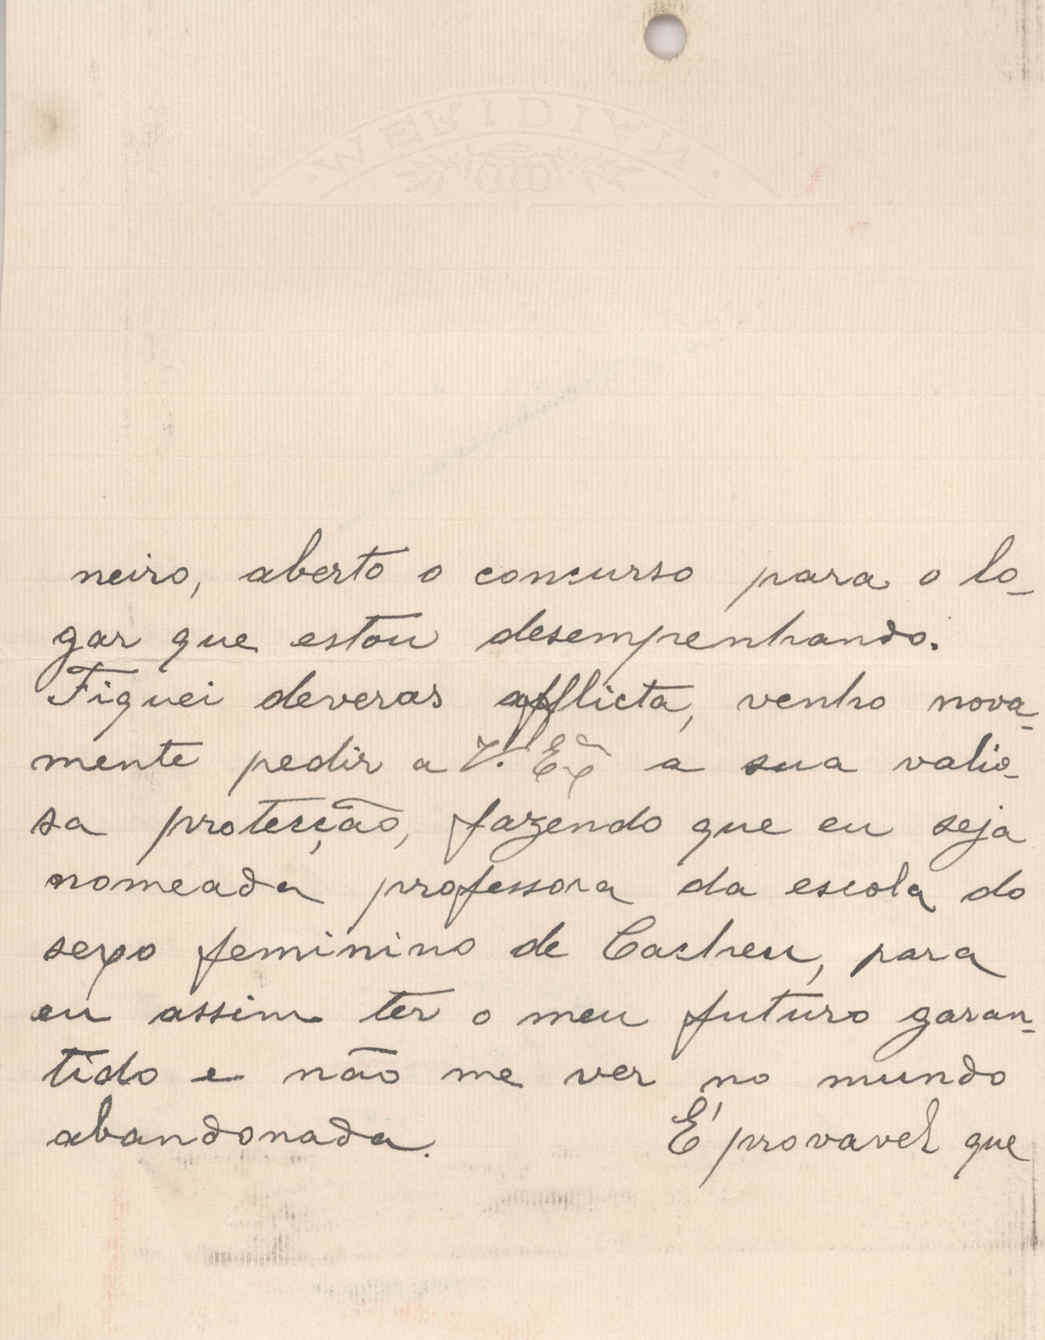 WERIDIYL
neiro, aberto o concurso para o lo-
gar que estou desempenhando.
Fiquei deveras afflicta, venho nova-
mente pedir a V. Exª a sua valio-
sa protecção, fazendo que eu seja
nomeada professora da escola do
sexo feminino de Cacheu, para
eu assim ter o meu futuro garan-
tido e não me ver no mundo
abandonada. É provavel que